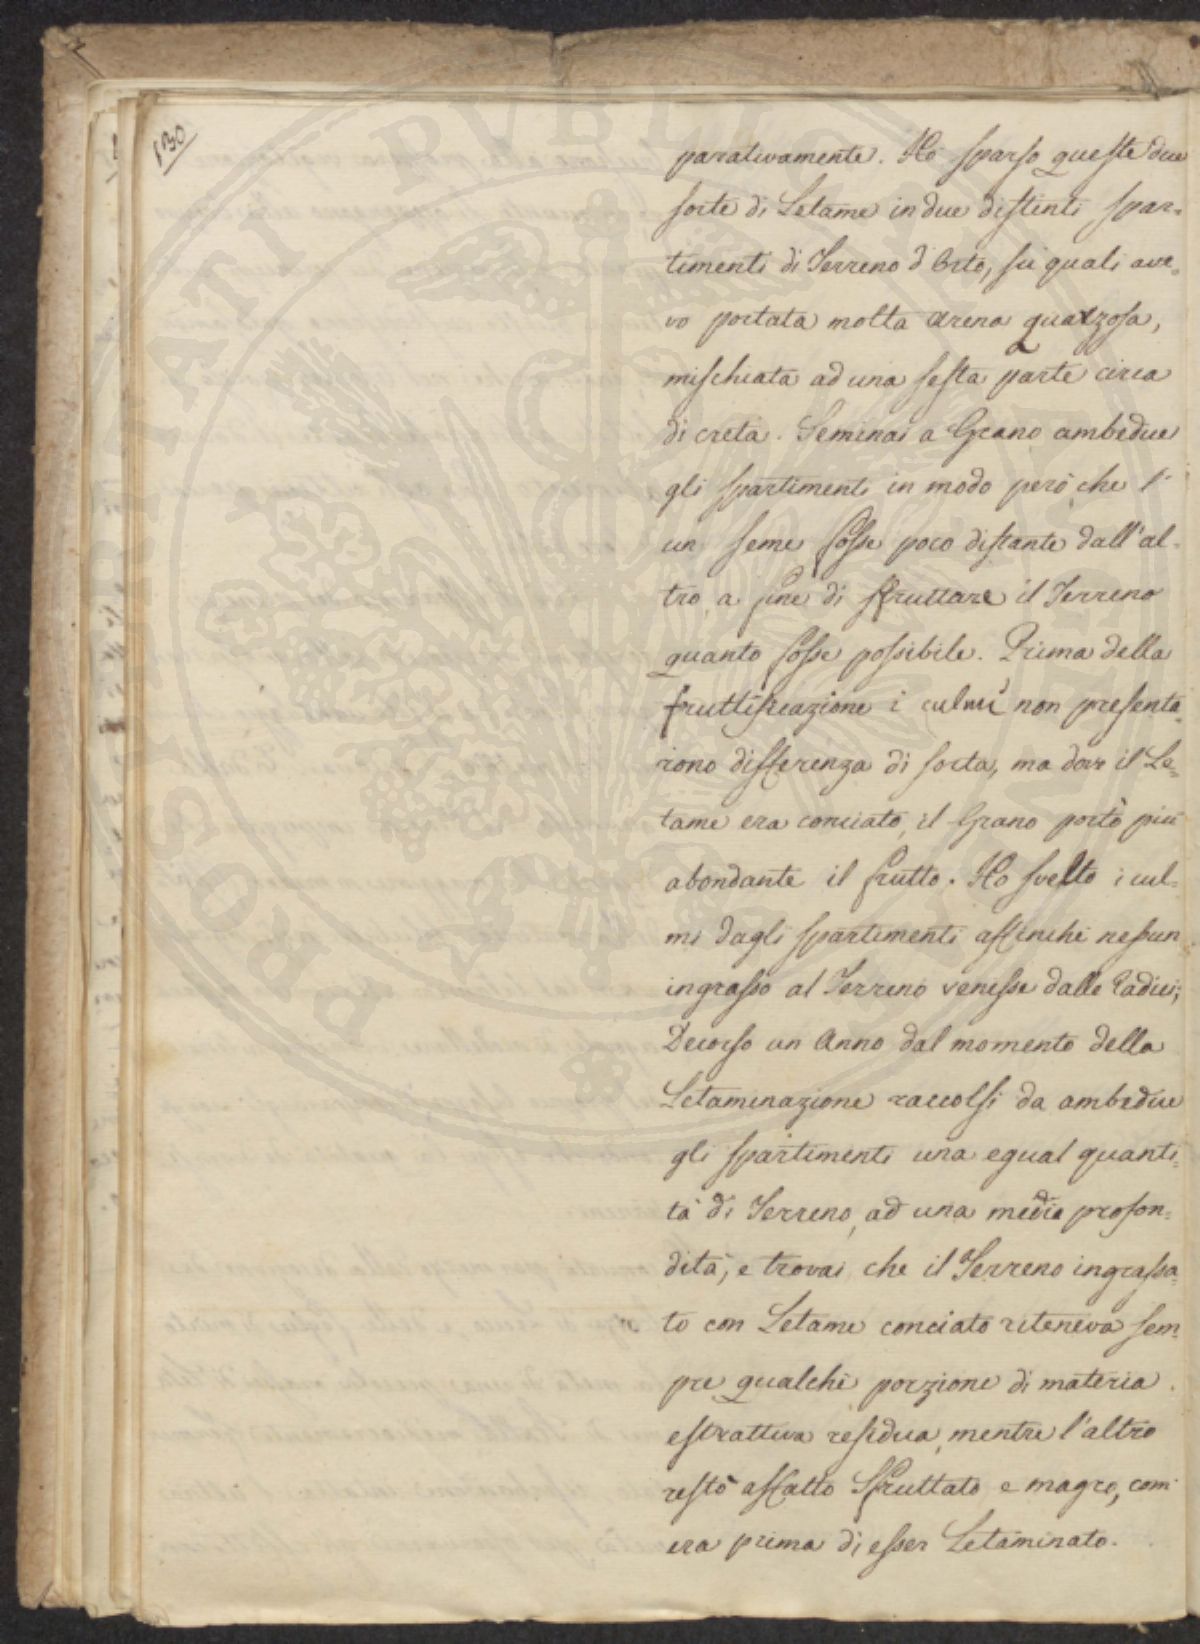 130
parativamente. Ho sparso queste due
sorte di Letame in due distinti spar-
timenti di Terreno d'Orto, su quali ave-
vo portata molta arena quarzosa,
mischiata ad una sesta parte circa
di creta. Seminai a Grano ambedue
gli spartimenti in modo però che l'
un seme fosse poco distante dall'al-
tro a fine di sfruttare il Terreno
quanto fosse possibile. Prima della
fruttificazione i culmi non presenta-
rono differenza di sorta, ma dove il Le-
tame era conciato, il Grano portò più
abondante il frutto. Ho svelto i cul-
mi dagli spartimenti affinchè nessun
ingrasso al Terreno venisse dalle Radici;
Decorso un Anno dal momento della
Letaminazione raccolsi da ambedue
gli spartimenti una egual quanti-
tà di Terreno, ad una media profon-
dità, e trovai che il Terreno ingrassa-
to con Letame conciato riteneva sem-
pre qualche porzione di materia
estrattiva residua, mentre l'altro
restò affatto Sfruttato e magro, com'
era prima di esser Letaminato.
PROSPERITATI PUBLICAE AUGENDAE